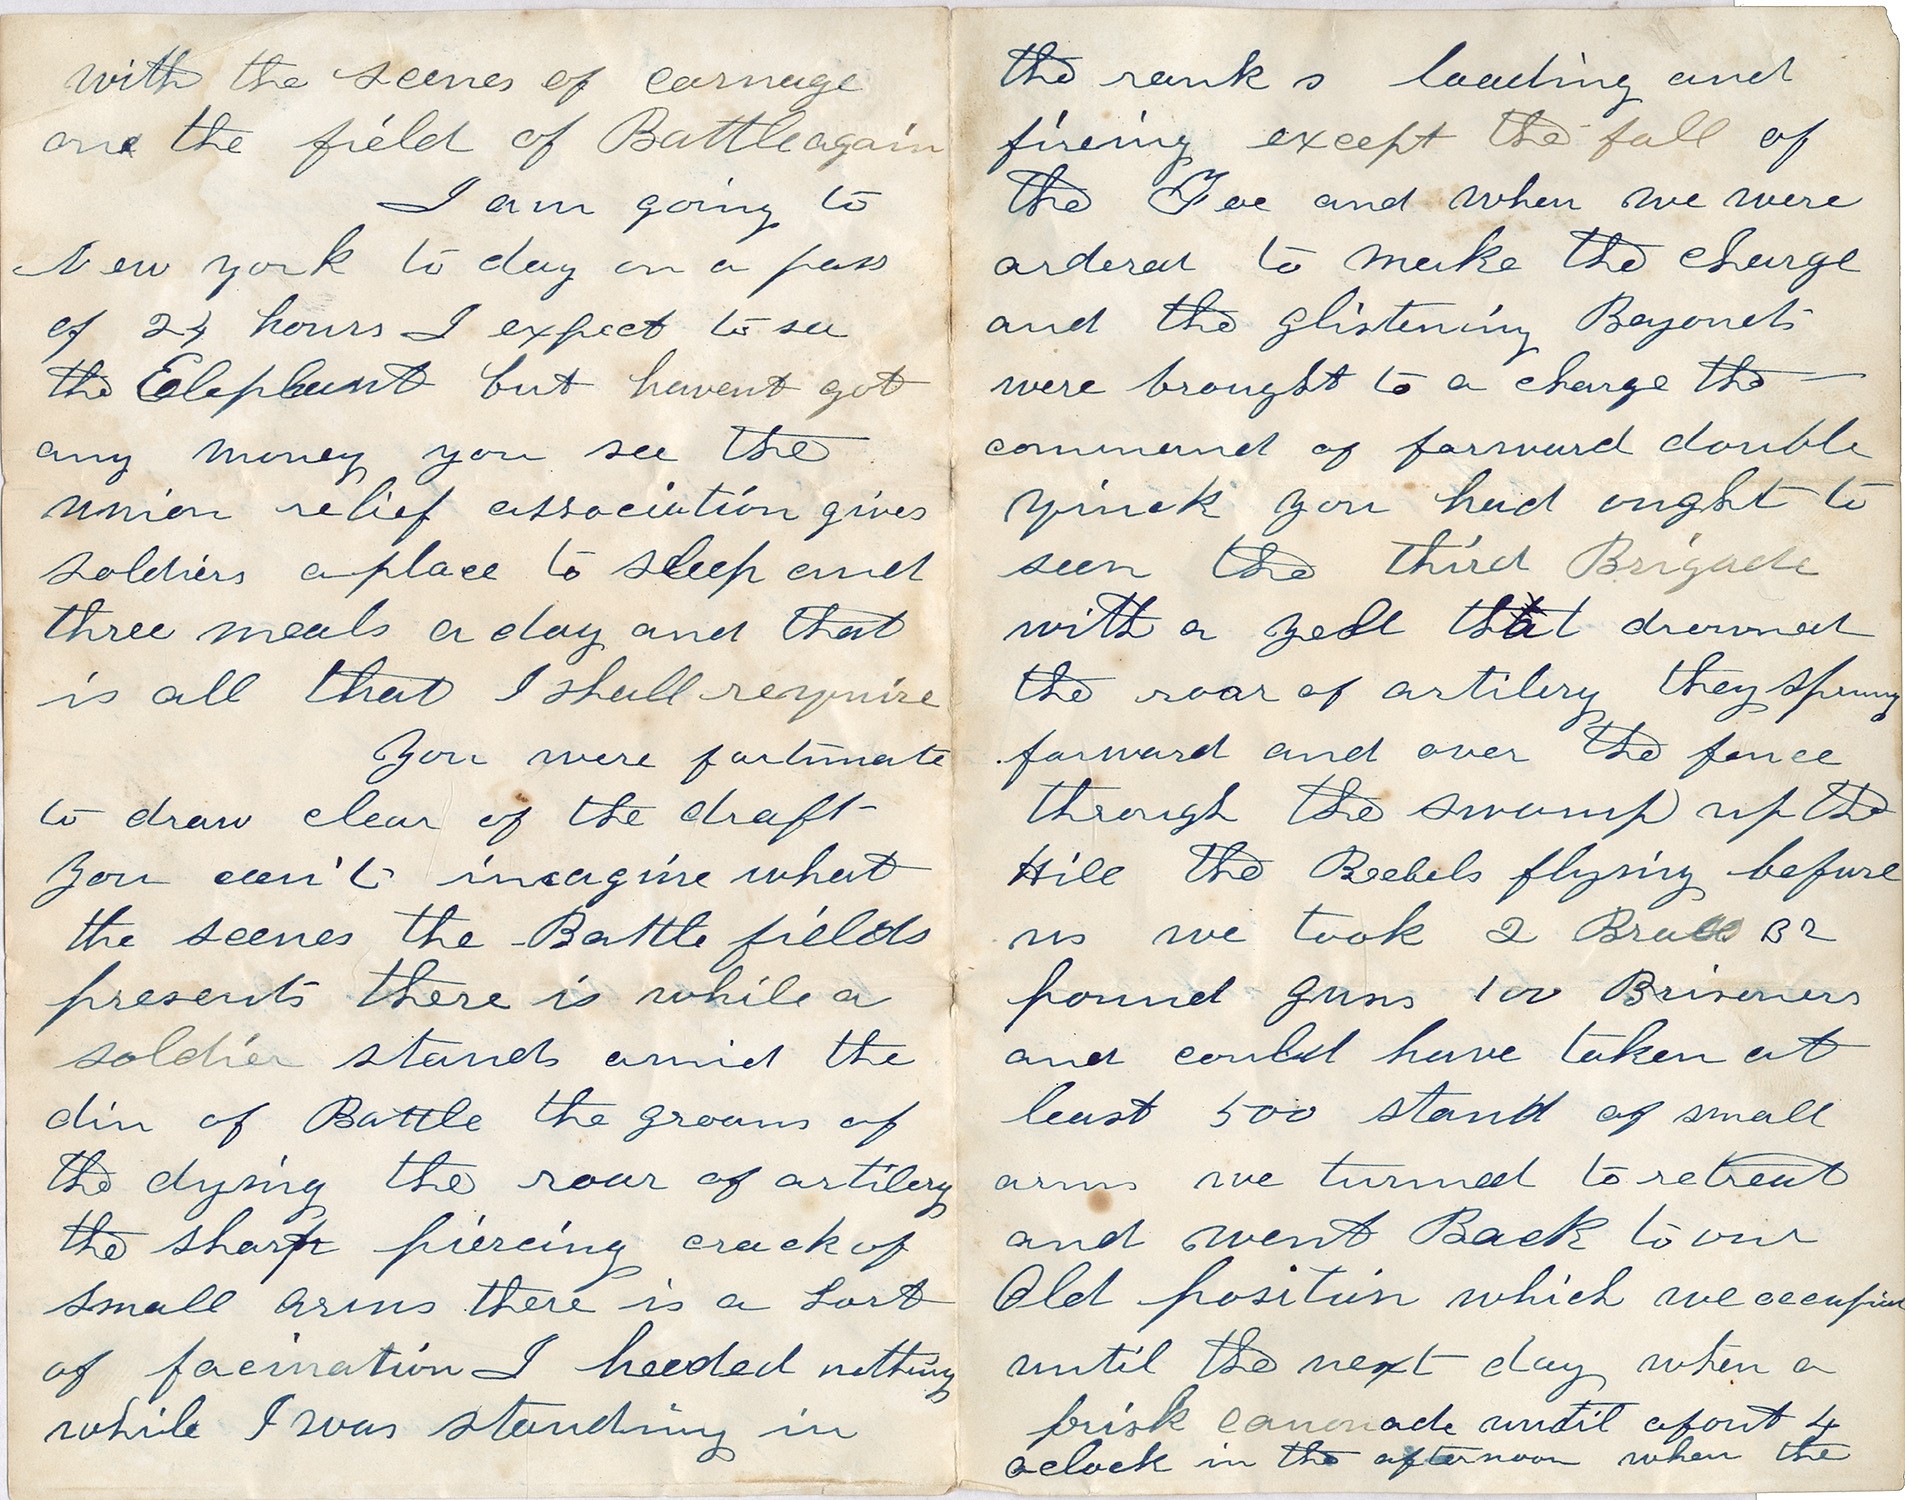 with the scenes of carnage
one the field of Battle again
I am going to
New york to day on a pass
of 24 hours I expect to see
the Eelephant but havent got
any money you see the
union relief association gives
soldiers a place to sleep and
three meals a day and that
is all that I shall require
you were fortunate
to draw clear of the draft
you can't imagine what
the scenes the Battle fields
presents there is while a
soldier stands amid the
din of Battle the groans of
the dying the roar of artilery
the sharp piercing crack of
small arms there is a sort
of facination I heeded nothing
while I was standing in
the ranks loading and
fireing except the fall of
the Foe and when we were
ordered to make the charge
and the glistening Bayonets
were brought to a charge the
command of forward double
quick you had ought to
seen the third Brigade
with a yell that drowned
the roar of artilery they sprung
forward and over the fence
through the swamp up the
Hill the Reebels flying before
us we took 2 Brass 32
pound guns 100 Prisoners
and could have taken at
least 500 stand of small
arms we turned to retreat
and went Back to our
Old position which we occupied
until the next day when a
brisk canonade until about 4
oclock in the afternoon when the